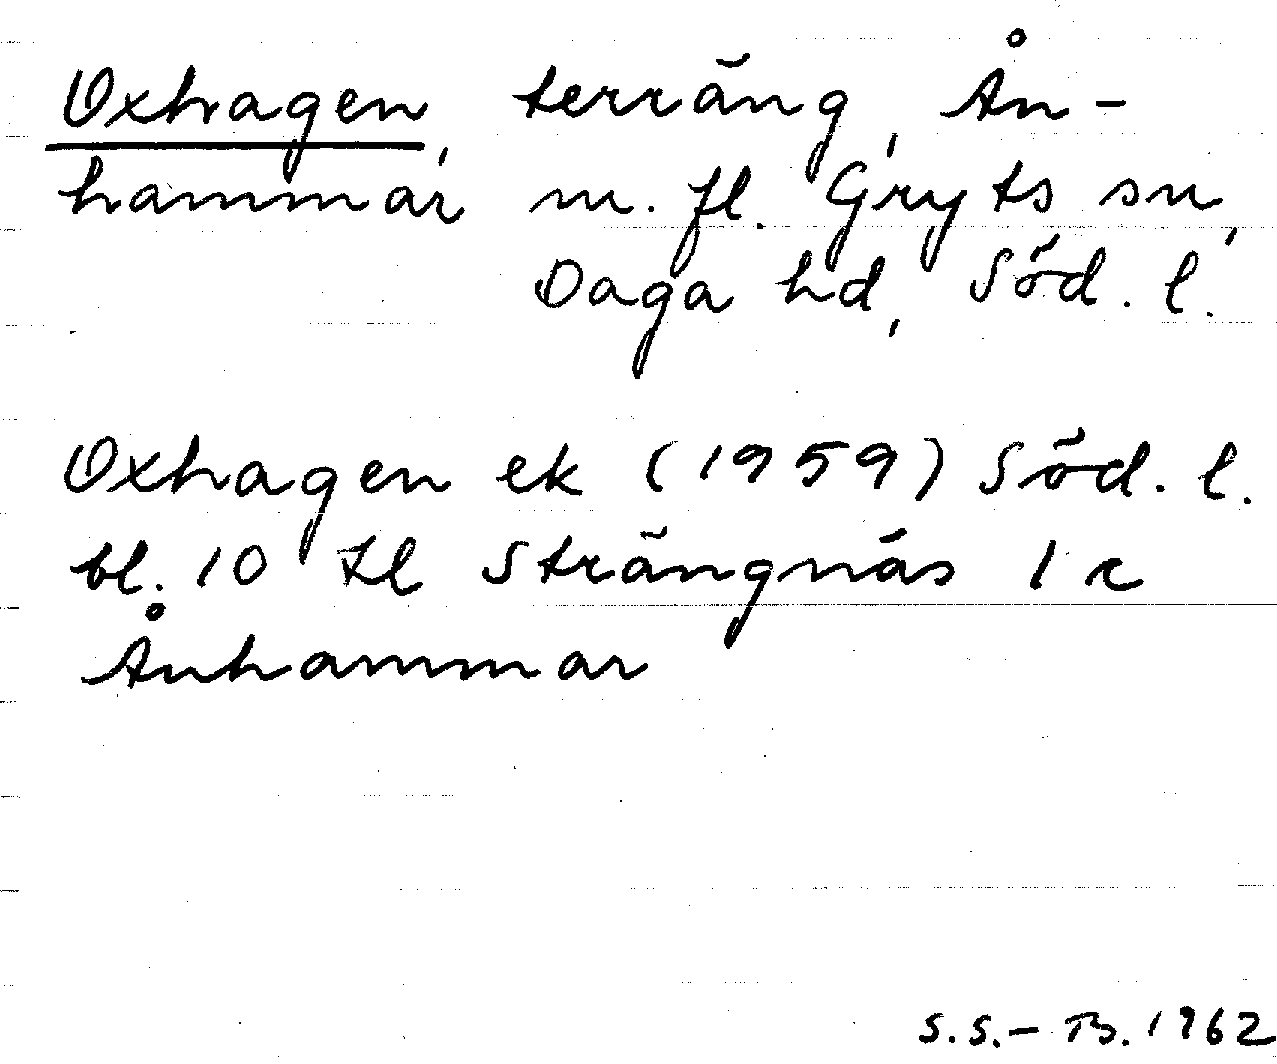 Oxhagen, terräng, Ån-
hammar m. fl. Gryts sn,
Daga hd, Söd. l.
Oxhagen ek (1959) Söd. l.
bl. 10 tl Strängnäs 1 c
Ånhammar
S.S.-B. 1962